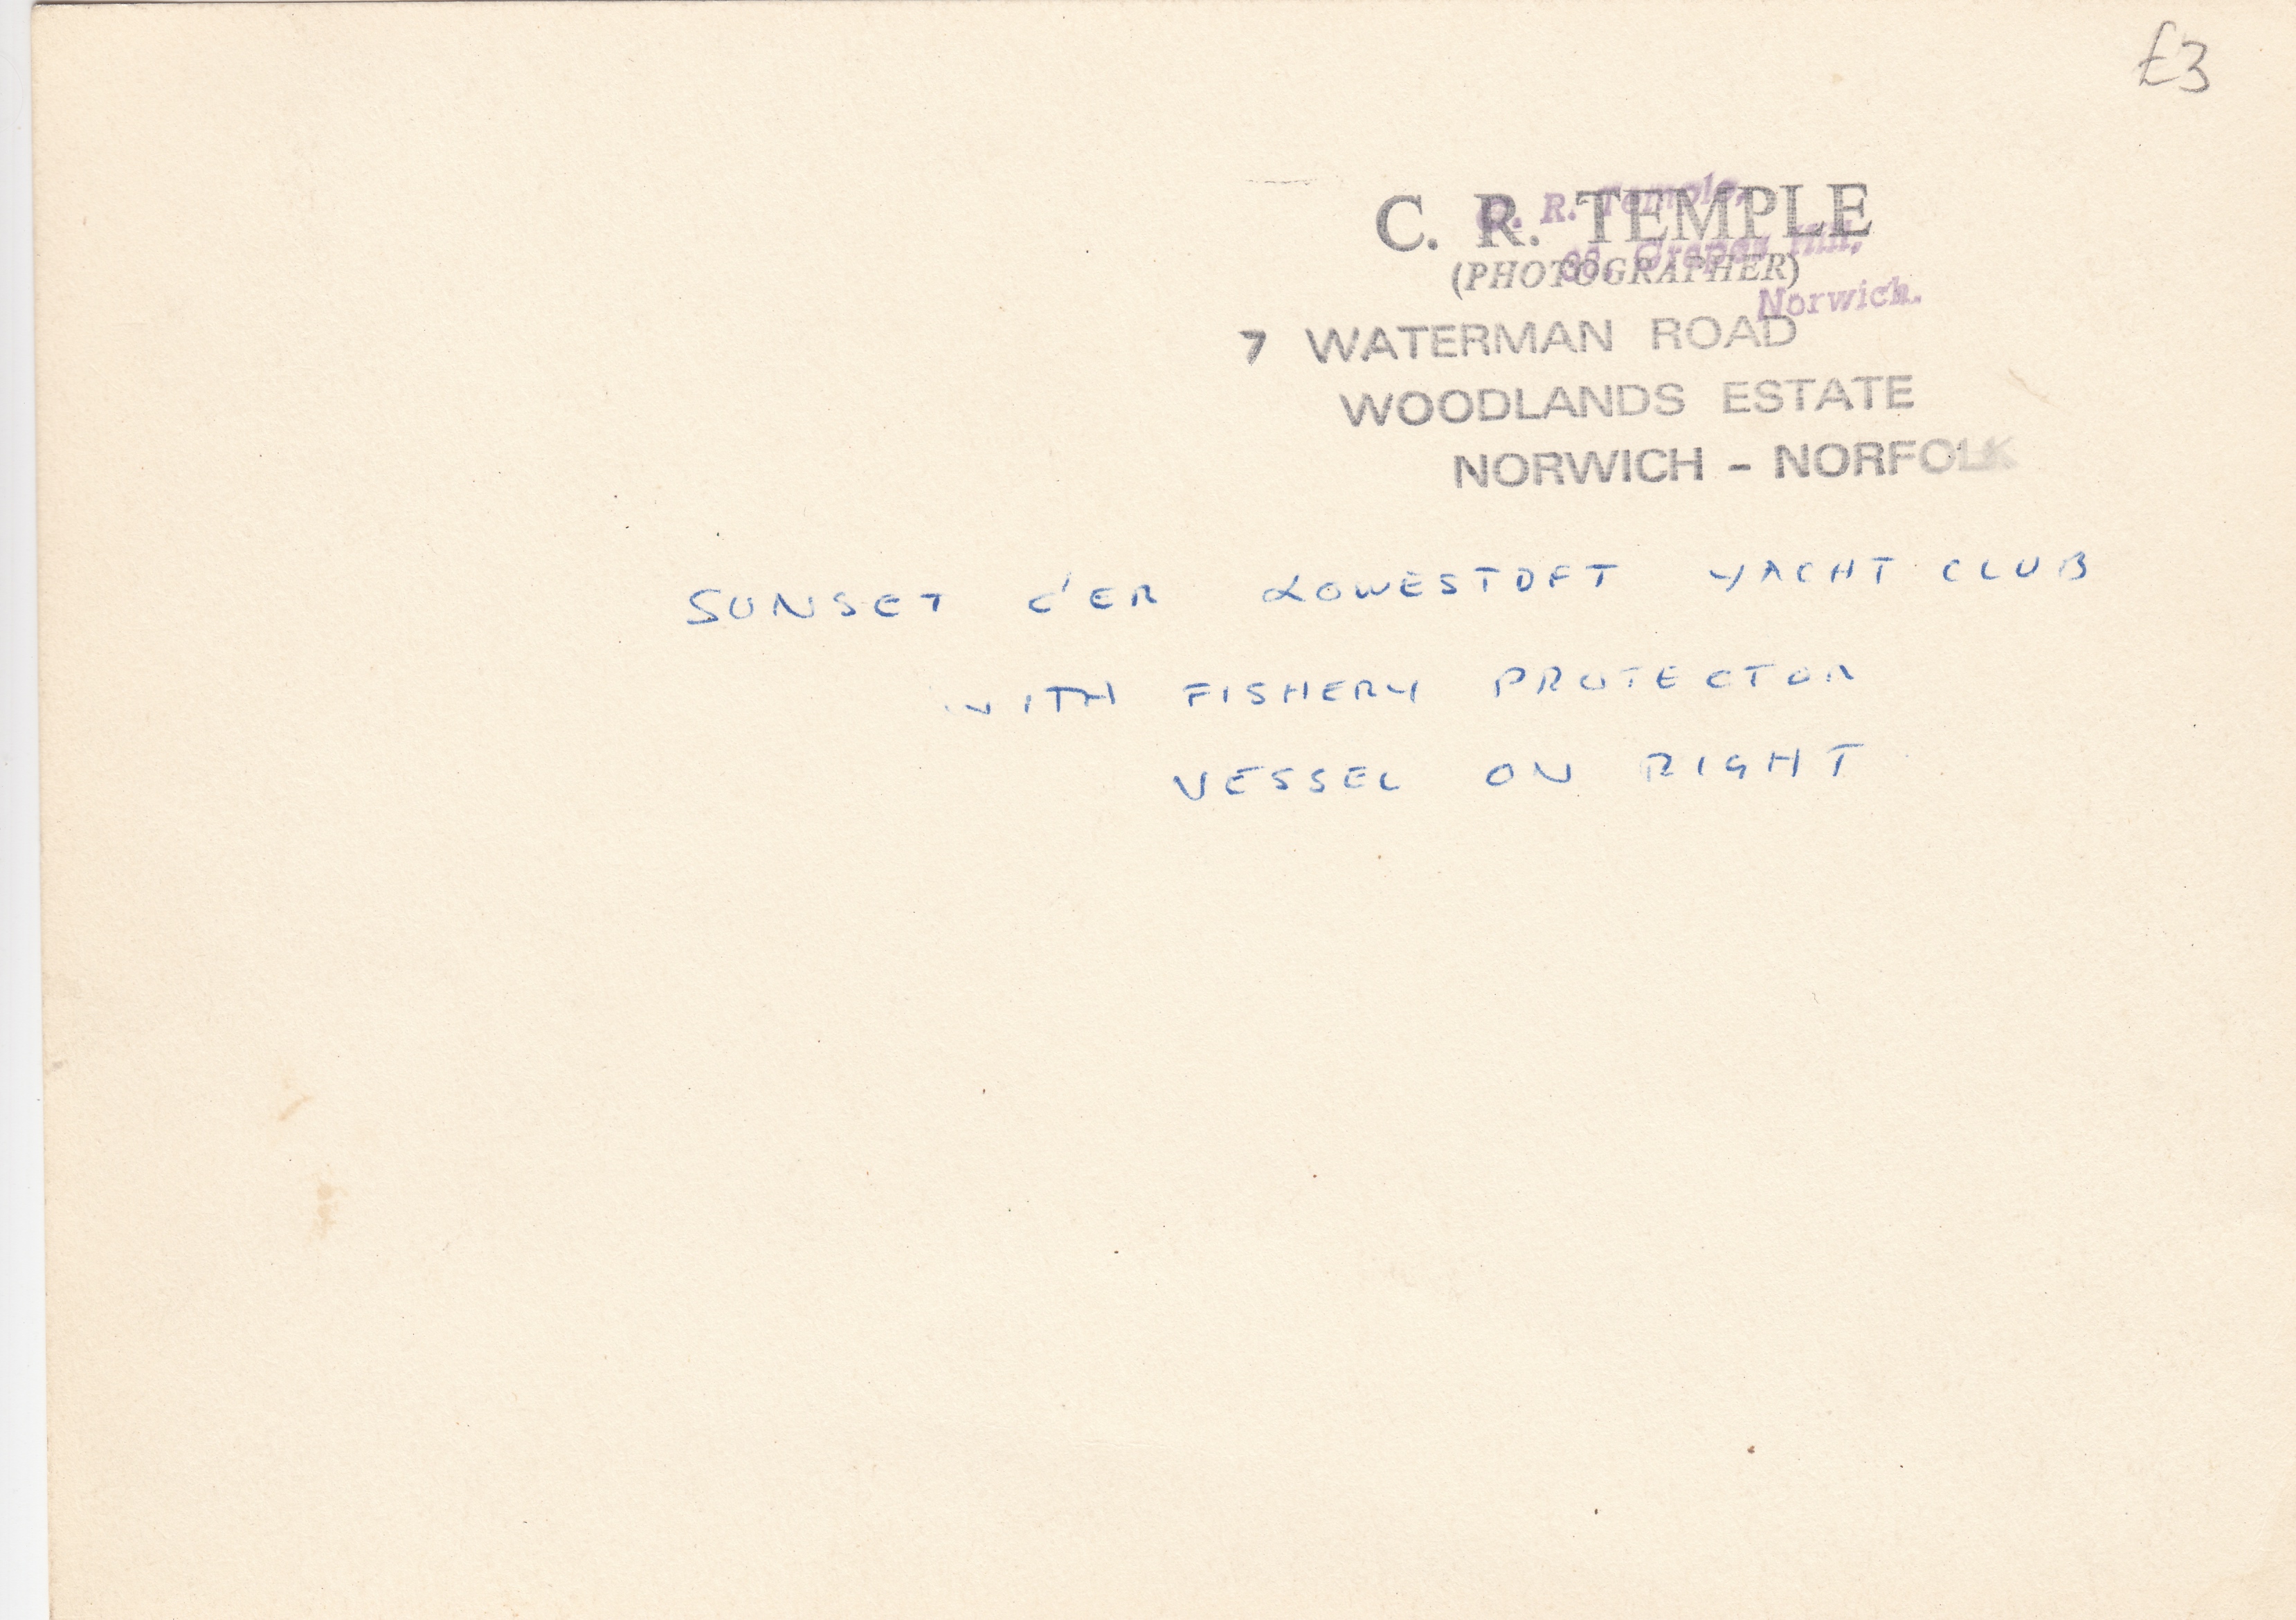 £3
C. R. TEMPLE
(PHOTOGRAPHER)
7 WATERMAN ROAD
WOODLANDS ESTATE
NORWICH - NORFOLK
C. R. Temple,
Grapes Hill,
Norwich.
SUNSET O'ER LOWESTOFT YACHT CLUB
WITH FISHERY PROTECTOR
VESSEL ON RIGHT